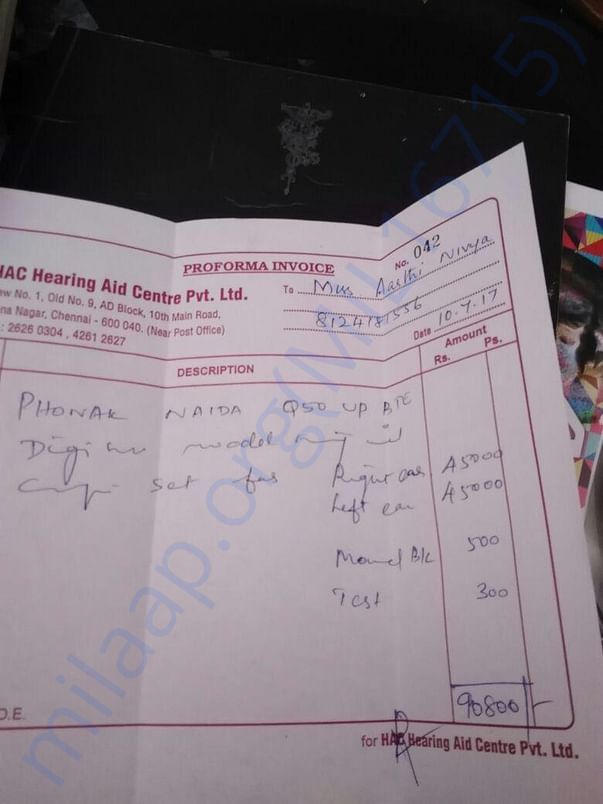 PROFORMA INVOICE
No. 042
HAC Hearing Aid Centre Pvt. Ltd.
ew No. 1, Old No. 9, AD Block, 10th Main Road,
na Nagar, Chennai - 600 040. (Near Post Office)
: 2626 0304 , 4261 2627
To Mrs Aarthi Nivya
8124181556
Date 10.7.17
DESCRIPTION
Amount
Rs. Ps.
PHONAK NAIDA Q50 UP BTE
Digi model
set for Right ear 45000
Left ear 45000
500
Test 300
90800/-
O.E.
for HAC Hearing Aid Centre Pvt. Ltd.
milaap.org(MIL16715)